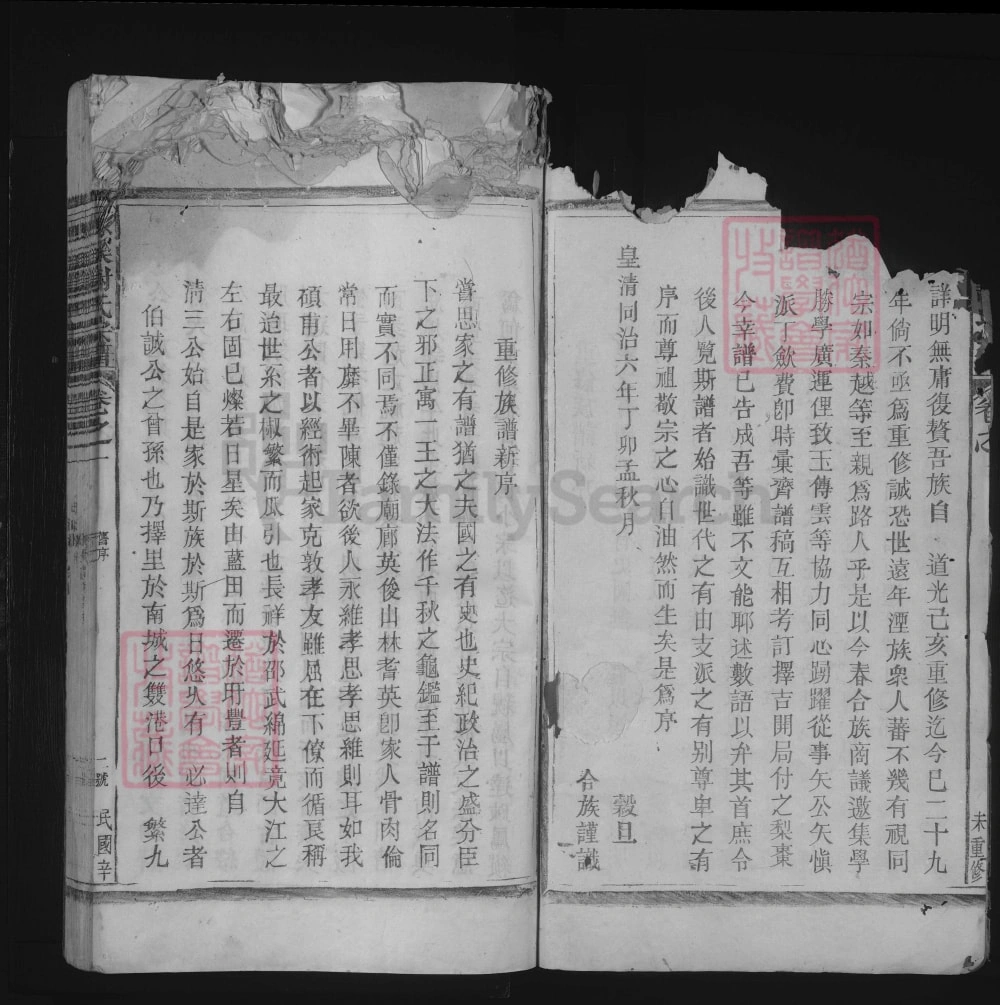 詳明無庸復贅吾族自　道光己亥重修迄今已二十九
年倘不亟爲重修誠恐世遠年湮族衆人蕃不幾有視同
宗如秦越等至親爲路人乎是以今春合族商議邀集學
勝學廣運俚致玉傳雲等協力同心踴躍從事矢公矢愼
派丁歛費卽時彙齊譜稿互相考訂擇吉開局付之梨棗
今幸譜已告成吾等雖不文能耶述數語以弁其首庶令
後人覽斯譜者始識世代之有由支派之有别尊卑之有
序而尊祖敬宗之心自油然而生矣是爲序
皇清同治六年丁卯孟秋月　穀旦
合族謹識
未重修
重修族譜新序
嘗思家之有譜猶之夫國之有史也史紀政治之盛分臣
下之邪正寓一王之大法作千秋之龜鑑至于譜則名同
而實不同焉不僅錄廟廊英俊山林耆英卽家人骨肉倫
常日用靡不畢陳者欲後人永維孝思孝思維則耳如我
碩甫公者以經術起家克敦孝友雖屈在下僚而循良稱
最迨世系之椒繁而瓜引也長祥於邵武綿延竟大江之
左右固已燦若日星矣由藍田而遷於玕豐者則自
清三公始自是家於斯族於斯爲日悠久有　必達公者
伯誠公之曾孫也乃擇里於南城之雙港口後　繁九
溪謝氏宗譜　卷之一
舊序
一號　民國辛
FamilySearch